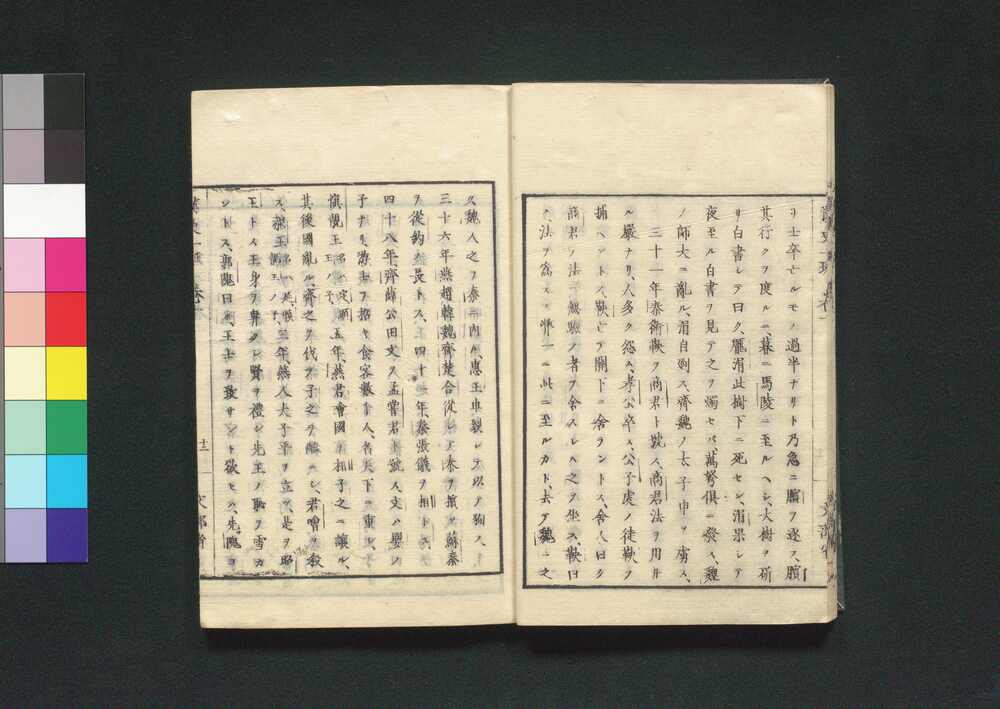 リ士卒亡ルモノ過半ナリト乃急ニ臏ヲ逐フ、臏
其行クヲ度ルニ、暮ニ馬陵ニ至ルヘシ、大樹ヲ斫
リ白書シテ曰ク、龐涓此樹下ニ死セン、涓果シテ
夜至ル白書ヲ見テ之ヲ燭セハ、萬弩俱ニ發ス、魏
ノ師大ニ亂ル、涓自剄ス、齊魏ノ太子申ヲ虜ス、
三十一年秦衛鞅ヲ商君ト號ス、商君法ヲ用井
ル嚴ナリ、人多ク怨ム、孝公卒ス、公子虔ノ徒鞅ヲ
捕ヘントス、鞅亡テ關下ニ舍ラントス、舍人曰ク
商君ノ法ニ無驗ノ者ヲ舍スレハ之ヲ坐ス、鞅曰
ク、法ヲ爲スノ弊一ニ此ニ至ルカト、去テ魏ニ之
ク魏人之ヲ秦ニ内ル、惠王車裂シテ以テ狥ス、
三十六年燕趙韓魏齊楚合從シテ秦ヲ擯ク蘇秦
ヲ從約ノ長トス、四十一年秦張儀ヲ相トス、
四十八年、齊薛公田文ヲ孟嘗君ト號ス、文ハ嬰ノ
子ナリ、游士ヲ招キ食客數千人、名天下ニ重シ、
愼靚王名ハ定顯王ノ子、五年、燕君噲國ヲ相子之ニ讓ル、
其後國亂ル、齊之ヲ伐テ子之ヲ醢ニシ、君噲ヲ殺
ス、赧王名ハ延愼靚王ノ子、三年、燕人太子平ヲ立ツ、是ヲ昭
王トス王身ヲ卑クシ賢ヲ禮シ先王ノ恥ヲ雪カ
ントス、郭隗曰ク、王士ヲ致サント欲セハ、先隗ヨ
十二